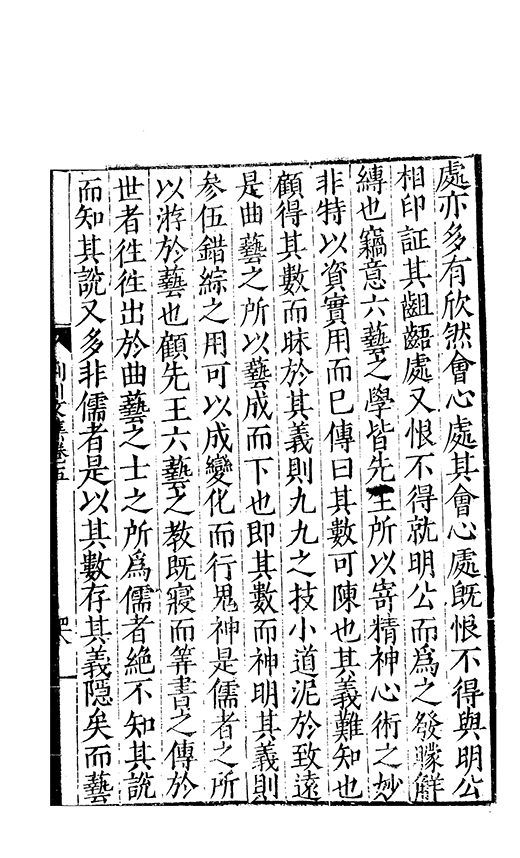 處亦多有欣然會心處其會心處旣恨不得與明公
相印証其齟齬處又恨不得就明公而爲之發矇觧
縳也竊意六藝之學皆先王所以寄精神心術之妙
非特以資實用而已傳曰其數可陳也其義難知也
顧得其數而昧於其義則九九之技小道泥於致遠
是曲藝之所以藝成而下也即其數而神明其義則
參伍錯綜之用可以成變化而行鬼神是儒者之所
以游於藝也顧先王六藝之教既寢而筭書之傳於
世者徃徃出於曲藝之士之所爲儒者絶不知其說
而知其說又多非儒者是以其數存其義隱矣而藝
川文集卷五